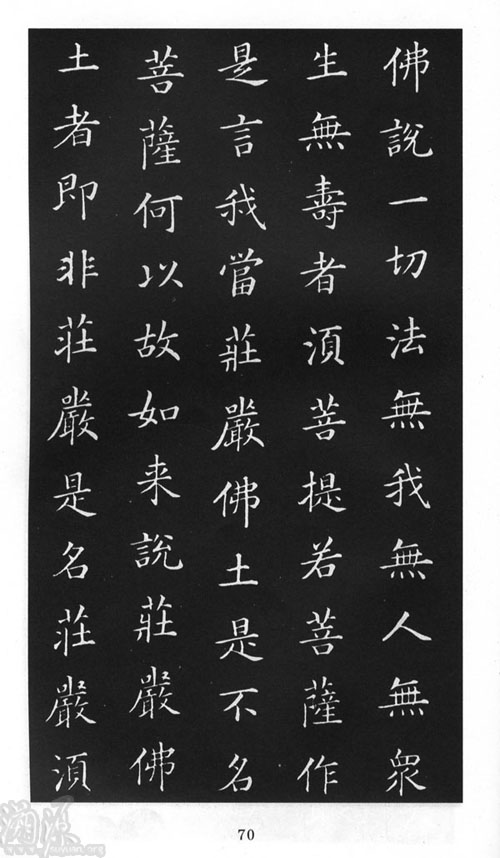 佛說一切法無我無人無衆
生無壽者湏菩提若菩薩作
是言我當莊嚴佛土是不名
菩薩何以故如来說莊嚴佛
土者即非莊嚴是名莊嚴湏
70
溯源
suyuan.org